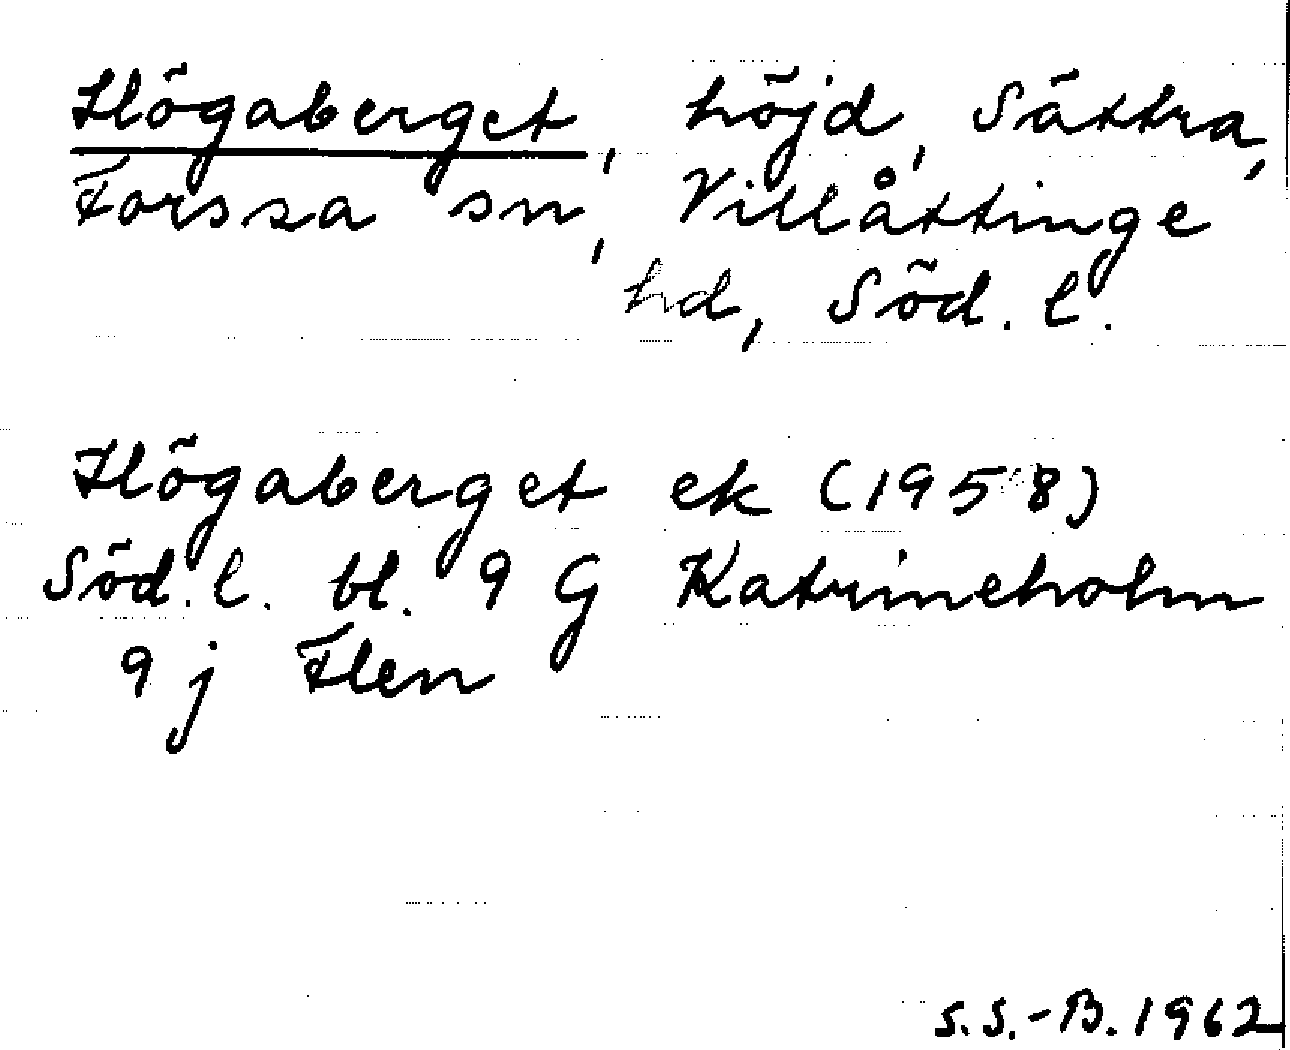 Högaberget, höjd, Sättra,
Forssa sn, Villåttinge
hd, Söd. l.
Högaberget ek (1958)
Söd. l. bl. 9 G Katrineholm
9 j Flen
S.S.-B. 1962